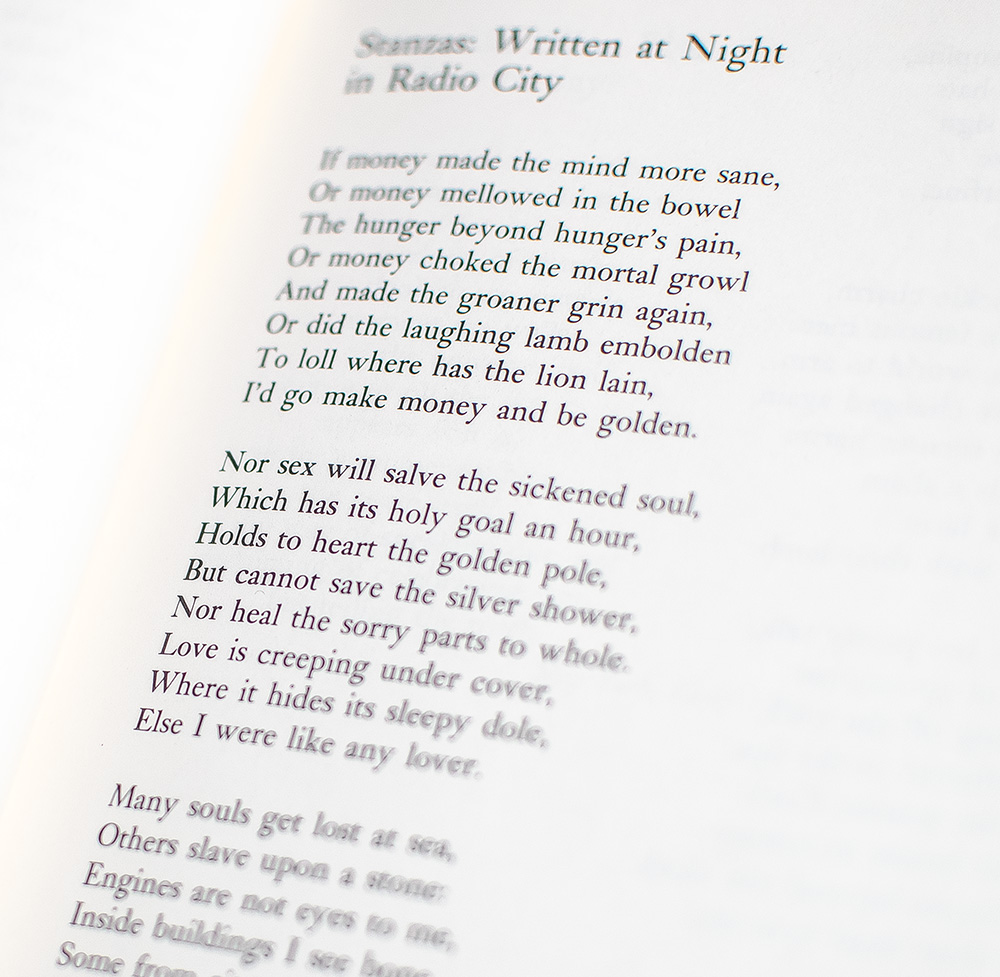 Stanzas: Written at Night
in Radio City
If money made the mind more sane,
Or money mellowed in the bowel
The hunger beyond hunger's pain,
Or money choked the mortal growl
And made the groaner grin again,
Or did the laughing lamb embolden
To loll where has the lion lain,
I'd go make money and be golden.
Nor sex will salve the sickened soul,
Which has its holy goal an hour,
Holds to heart the golden pole,
But cannot save the silver shower,
Nor heal the sorry parts to whole.
Love is creeping under cover,
Where it hides its sleepy dole,
Else I were like any lover.
Many souls get lost at sea,
Others slave upon a stone:
Engines are not eyes to me,
Inside buildings I see bone.
Some from